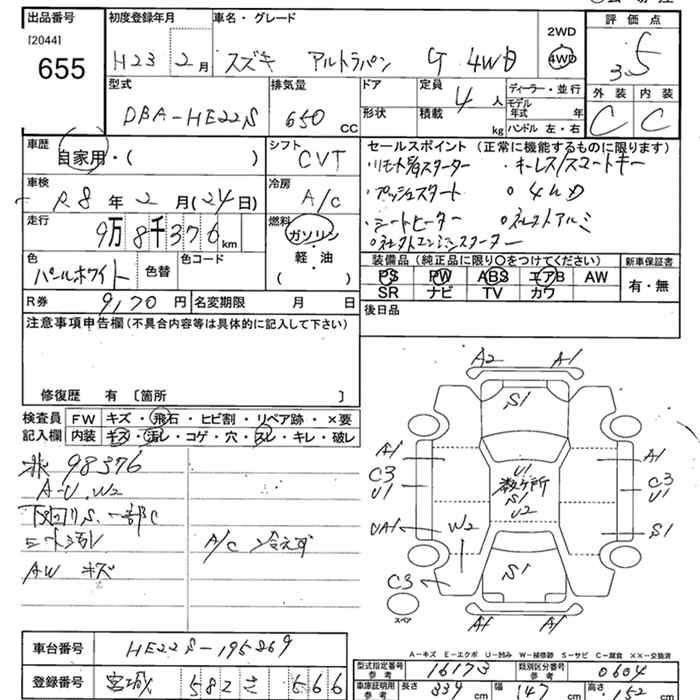 出品番号
[2044]
655
初度登録年月
H23 2月
車名・グレード
スズキ アルトラパン G 4WD
2WD
4WD
評価点
3.5
外装 内装
C C
型式
DBA-HE22S
排気量
650 CC
ドア
形状
定員
4人
積載
kg
ディーラー・並行
モデル年式 年
ハンドル 左・右
車歴
自家用・( )
シフト
CVT
セールスポイント(正常に機能するものに限ります)
・キーレス/スマートキー
・プッシュスタート ・4WD
・シートヒーター
車検
R8年2月(24日)
冷房
A/C
走行
9万8千376km
燃料
ガソリン
軽・油
( )
色
パールホワイト
色替
色コード
装備品(純正品に限り○をつけてください)
PS PW ABS エアB AW
SR ナビ TV カワ
新車保証書
有・無
R券
9,170円
名変期限 月 日
後日品
注意事項申告欄(不具合内容等は具体的に記入して下さい)
修復歴 有 〔箇所 〕
検査員
記入欄
FW キズ・飛石・ヒビ割・リペア跡・×要
内装 キズ・汚レ・コゲ・穴・スレ・キレ・破レ
98376
A-U.W2
下回りS.一部C
シート汚レ
A/C 冷えず
AW キズ
A2 A1
S1
A1 A1
C3 U1
C3 U1
U1
数ヶ所
S1
U2
UA1 W2
S1
S1
C3
スペア
A1 A1
A-キズ E-エクボ U-凹み W-補修跡 S-サビ C-腐食 XX-交換済
車台番号
HE22S-195869
登録番号
宮城 582 さ 566
型式指定番号
参考
16173
類別区分番号
参考
0604
車庫証明用
参考
長さ 339cm 幅 147cm 高さ 152cm